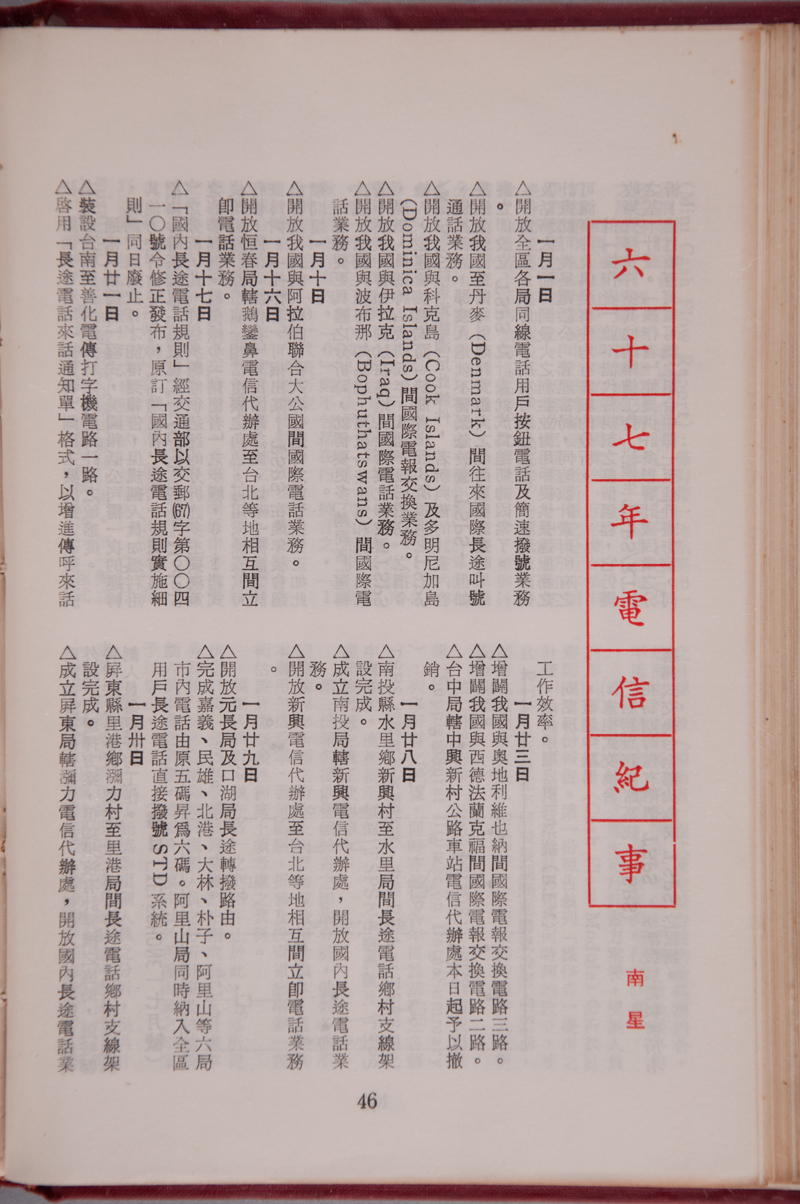 六十七年電信紀事
南星
一月一日
△開放全區各局同線電話用戶按鈕電話及簡速撥號業務
。
△開放我國至丹麥（Denmark）間往來國際長途叫號
通話業務。
△開放我國與科克島（Cook Islands）及多明尼加島
(Dominica Islands)間國際電報交換業務。
△開放我國與伊拉克（Iraq）間國際電話業務。
△開放我國與波布那（Bophuthatswans）間國際電
話業務。
一月十日
△開放我國與阿拉伯聯合大公國間國際電話業務。
一月十六日
△開放恒春局轄鵝鑾鼻電信代辦處至台北等地相互間立
卽電話業務。
一月十七日
△「國內長途電話規則」經交通部以交郵(67)字第〇〇四
一〇號令修正發布，原訂「國內長途電話規則實施細
則」同日廢止。
一月廿一日
△裝設台南至善化電傳打字機電路一路。
△啓用「長途電話來話通知單」格式，以增進傳呼來話
工作效率。
一月廿三日
△增闢我國與奧地利維也納間國際電報交換電路三路。
△增闢我國與西德法蘭克福間國際電報交換電路二路。
△台中局轄中興新村公路車站電信代辦處本日起予以撤
銷。
一月廿八日
△南投縣水里鄉新興村至水里局間長途電話鄉村支線架
設完成。
△成立南投局轄新興電信代辦處，開放國內長途電話業
務。
△開放新興電信代辦處至台北等地相互間立卽電話業務
。
一月廿九日
△開放元長局及口湖局長途轉撥路由。
△完成嘉義、民雄、北港、大林、朴子、阿里山等六局
市內電話由原五碼昇爲六碼。阿里山局同時納入全區
用戶長途電話直接撥號STD系統。
一月卅日
△屏東縣里港鄉瀰力村至里港局間長途電話鄉村支線架
設完成。
△成立屏東局轄瀰力電信代辦處，開放國內長途電話業
46